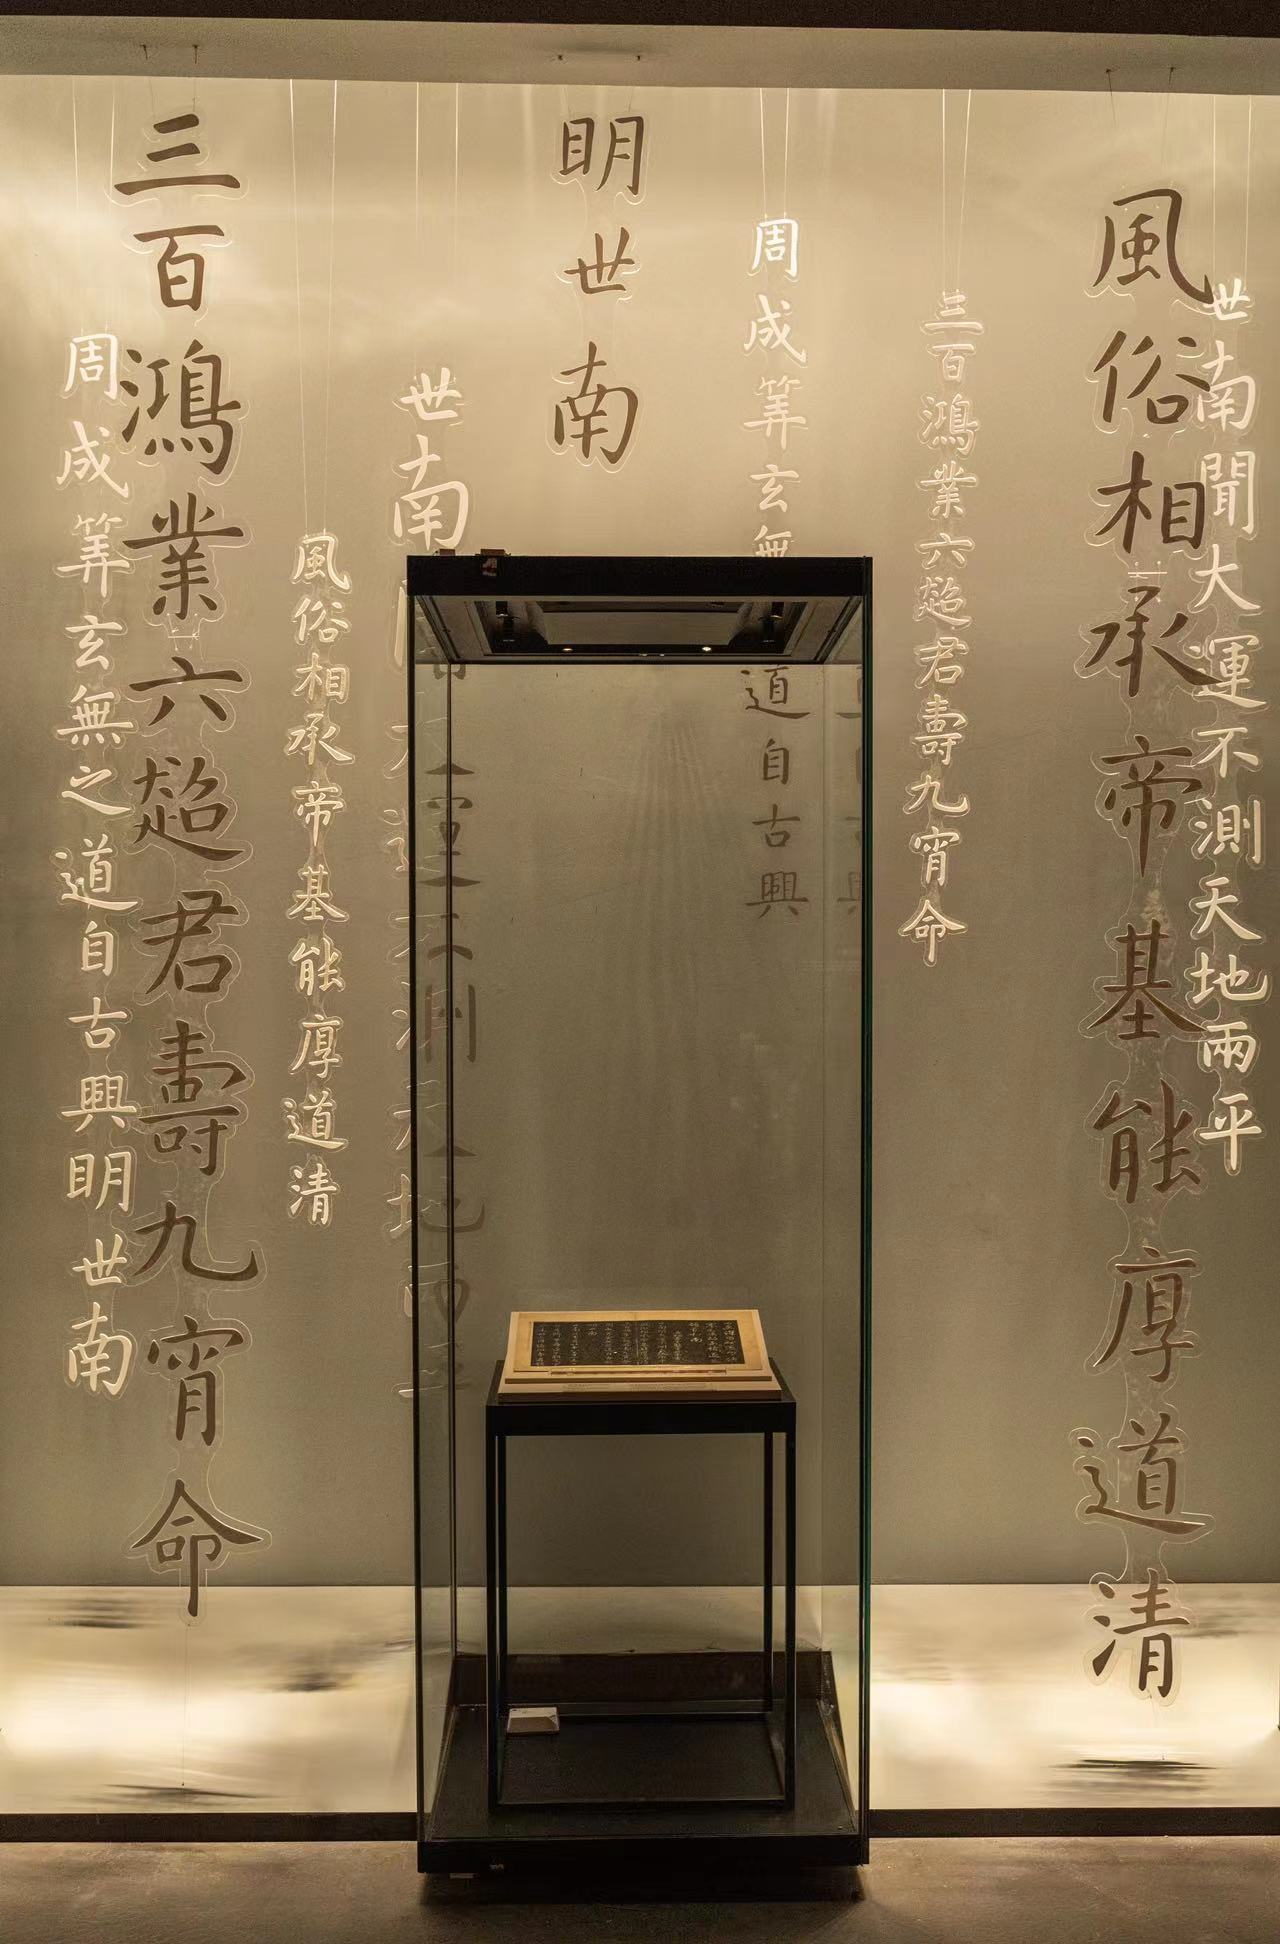 世南聞大運不測天地兩平
風俗相承帝基能厚道清
三百鴻業六超君壽九宵命
周成筭玄無道自古興
明世南
世南
風俗相承帝基能厚道清
三百鴻業六超君壽九宵命
周成筭玄無之道自古興明世南